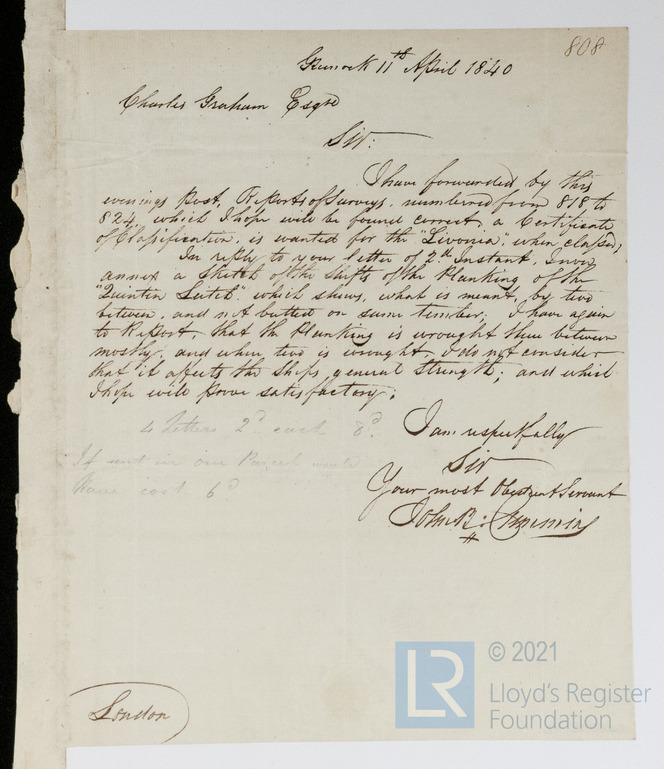 808
Greenock 11th April 1840
Charles Graham Esqre
Sir.
I have forwarded by this
evenings Post, Reports of Surveys, numbered from 818 to
824, which I hope will be found correct, a Certificate
of Classification, is wanted for the "Livonia", when classed,
In reply to your letter of 2nd Instant, I now
annex a Sketch of the Shifts of the Planking of the
"Quintin Leitch" which shews, what is meant, by two
between, and not butted on same timber; I have again
to Report, that the Planking is wrought three between
mostly, and when two is wrought, I do not consider
that it affects the Ships general Strength; and which
I hope will prove satisfactory;
4 Letters 2d each 8d.
If sent in one Parcel would
Have cost 6d
I am respectfully
Sir
Your most Obedient Servant
John B: Cummins
London
LR © 2021
Lloyd's Register
Foundation